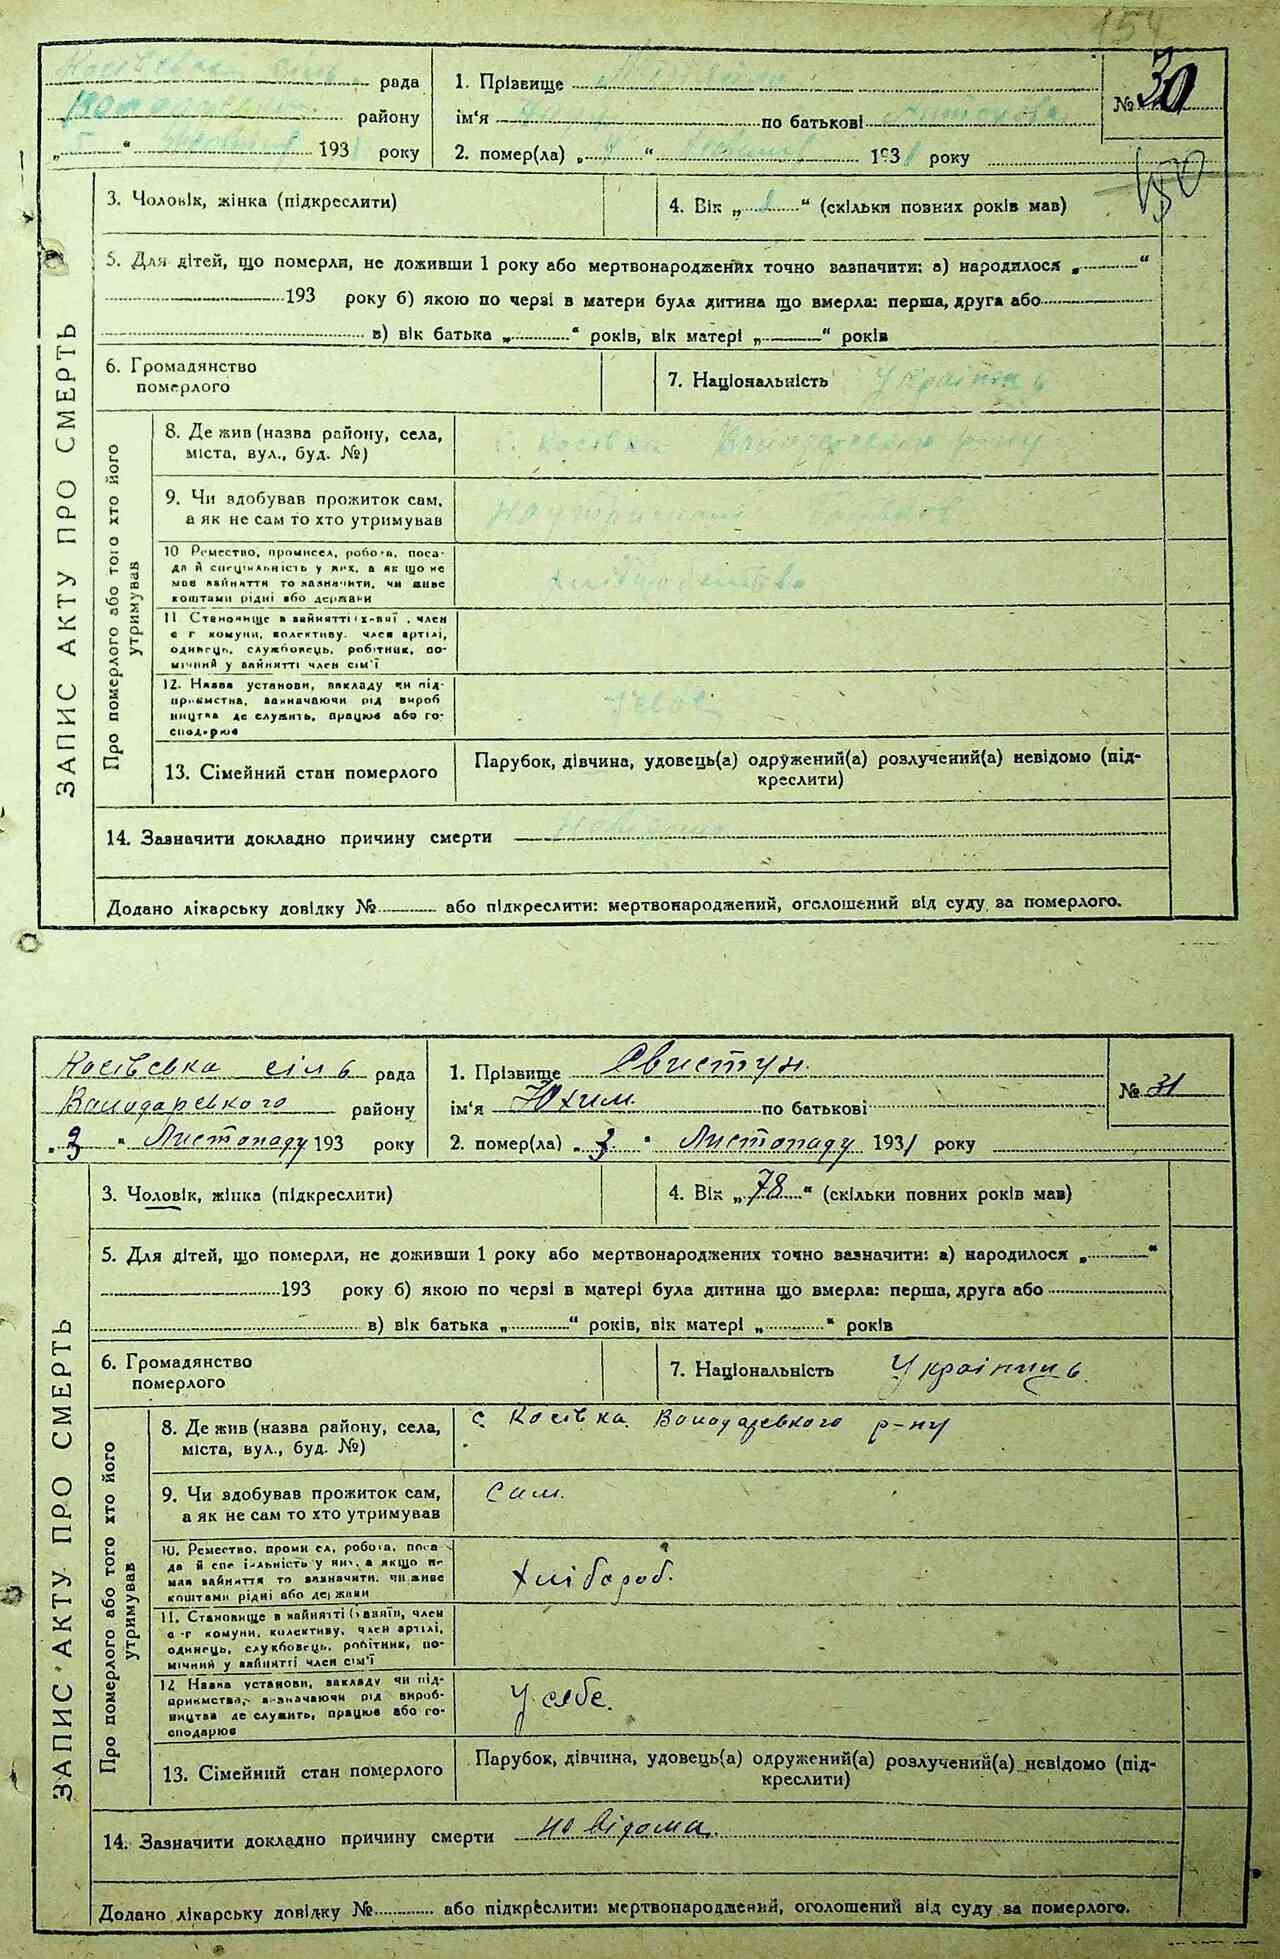 154
рада
1. Прізвище
№ 30
району
ім'я по батькові
„ “ 193 року
2. помер(ла) „ “ 1931 року
150
ЗАПИС АКТУ ПРО СМЕРТЬ
3. Чоловік, жінка (підкреслити)
4. Вік „ “ (скільки повних років мав)
5. Для дітей, що померли, не доживши 1 року або мертвонароджених точно зазначити: а) народилося „ “
193 року б) якою по черзі в матери була дитина що вмерла: перша, друга або
в) вік батька „ “ років, вік матері „ “ років
6. Громадянство
померлого
7. Національність Українець
Про померлого або того хто його
утримував
8. Де жив (назва району, села,
міста, вул., буд. №)
с. Косівка Володарського р-ну
9. Чи здобував прожиток сам,
а як не сам то хто утримував
10 Ремество, промисел, робота, поса-
да й спеціяльність у них, а як що не
мав зайняття то зазначити, чи живе
коштами рідні або держави
11 Становище в зайнятті член
с г комуни, колективу, член артілі,
одинець, службовець, робітник, по-
мічний у зайнятті член сім'ї
12. Назва установи, закладу чи під-
приємства, зазначаючи рід вироб
ництва де служить, працює або го-
сподарює
13. Сімейний стан померлого
Парубок, дівчина, удовець(а) одружений(а) розлучений(а) невідомо (під-
креслити)
14. Зазначити докладно причину смерти
Додано лікарську довідку № або підкреслити: мертвонароджений, оголошений від суду за померлого.
Косівська сільь рада
1. Прізвище Свистун.
№ 31
Володарського району
ім'я Юхим по батькові
„ 3 “ Листопаду 193 року
2. помер(ла) „ 3 “ Листопаду 1931 року
ЗАПИС АКТУ ПРО СМЕРТЬ
3. Чоловік, жінка (підкреслити)
4. Вік „ 78 “ (скільки повних років мав)
5. Для дітей, що померли, не доживши 1 року або мертвонароджених точно зазначити: а) народилося „ “
193 року б) якою по черзі в матері була дитина що вмерла: перша, друга або
в) вік батька „ “ років, вік матері „ “ років
6. Громадянство
померлого
7. Національність Українець.
Про померлого або того хто його
утримував
8. Де жив (назва району, села,
міста, вул., буд. №)
с. Косівка Володарського р-ну
9. Чи здобував прожиток сам,
а як не сам то хто утримував
сам.
10. Ремество, промисел, робота, поса
да й спеціяльність у них, а якщо не
мав зайняття то зазначити, чи живе
коштами рідні або держави
хлібороб.
11. Становище в зайнятті член
с-г комуни, колективу, член артілі,
одинець, службовець, робітник, по-
мічний у зайнятті член сім'ї
12 Назва установи, закладу чи під-
приємства, зазначаючи рід вироб-
ництва де служить, працює або го-
сподарює
У себе.
13. Сімейний стан померлого
Парубок, дівчина, удовець(а) одружений(а) розлучений(а) невідомо (під-
креслити)
14. Зазначити докладно причину смерти не відома.
Додано лікарську довідку № або підкреслити: мертвонароджений, оголошений від суду за померлого.